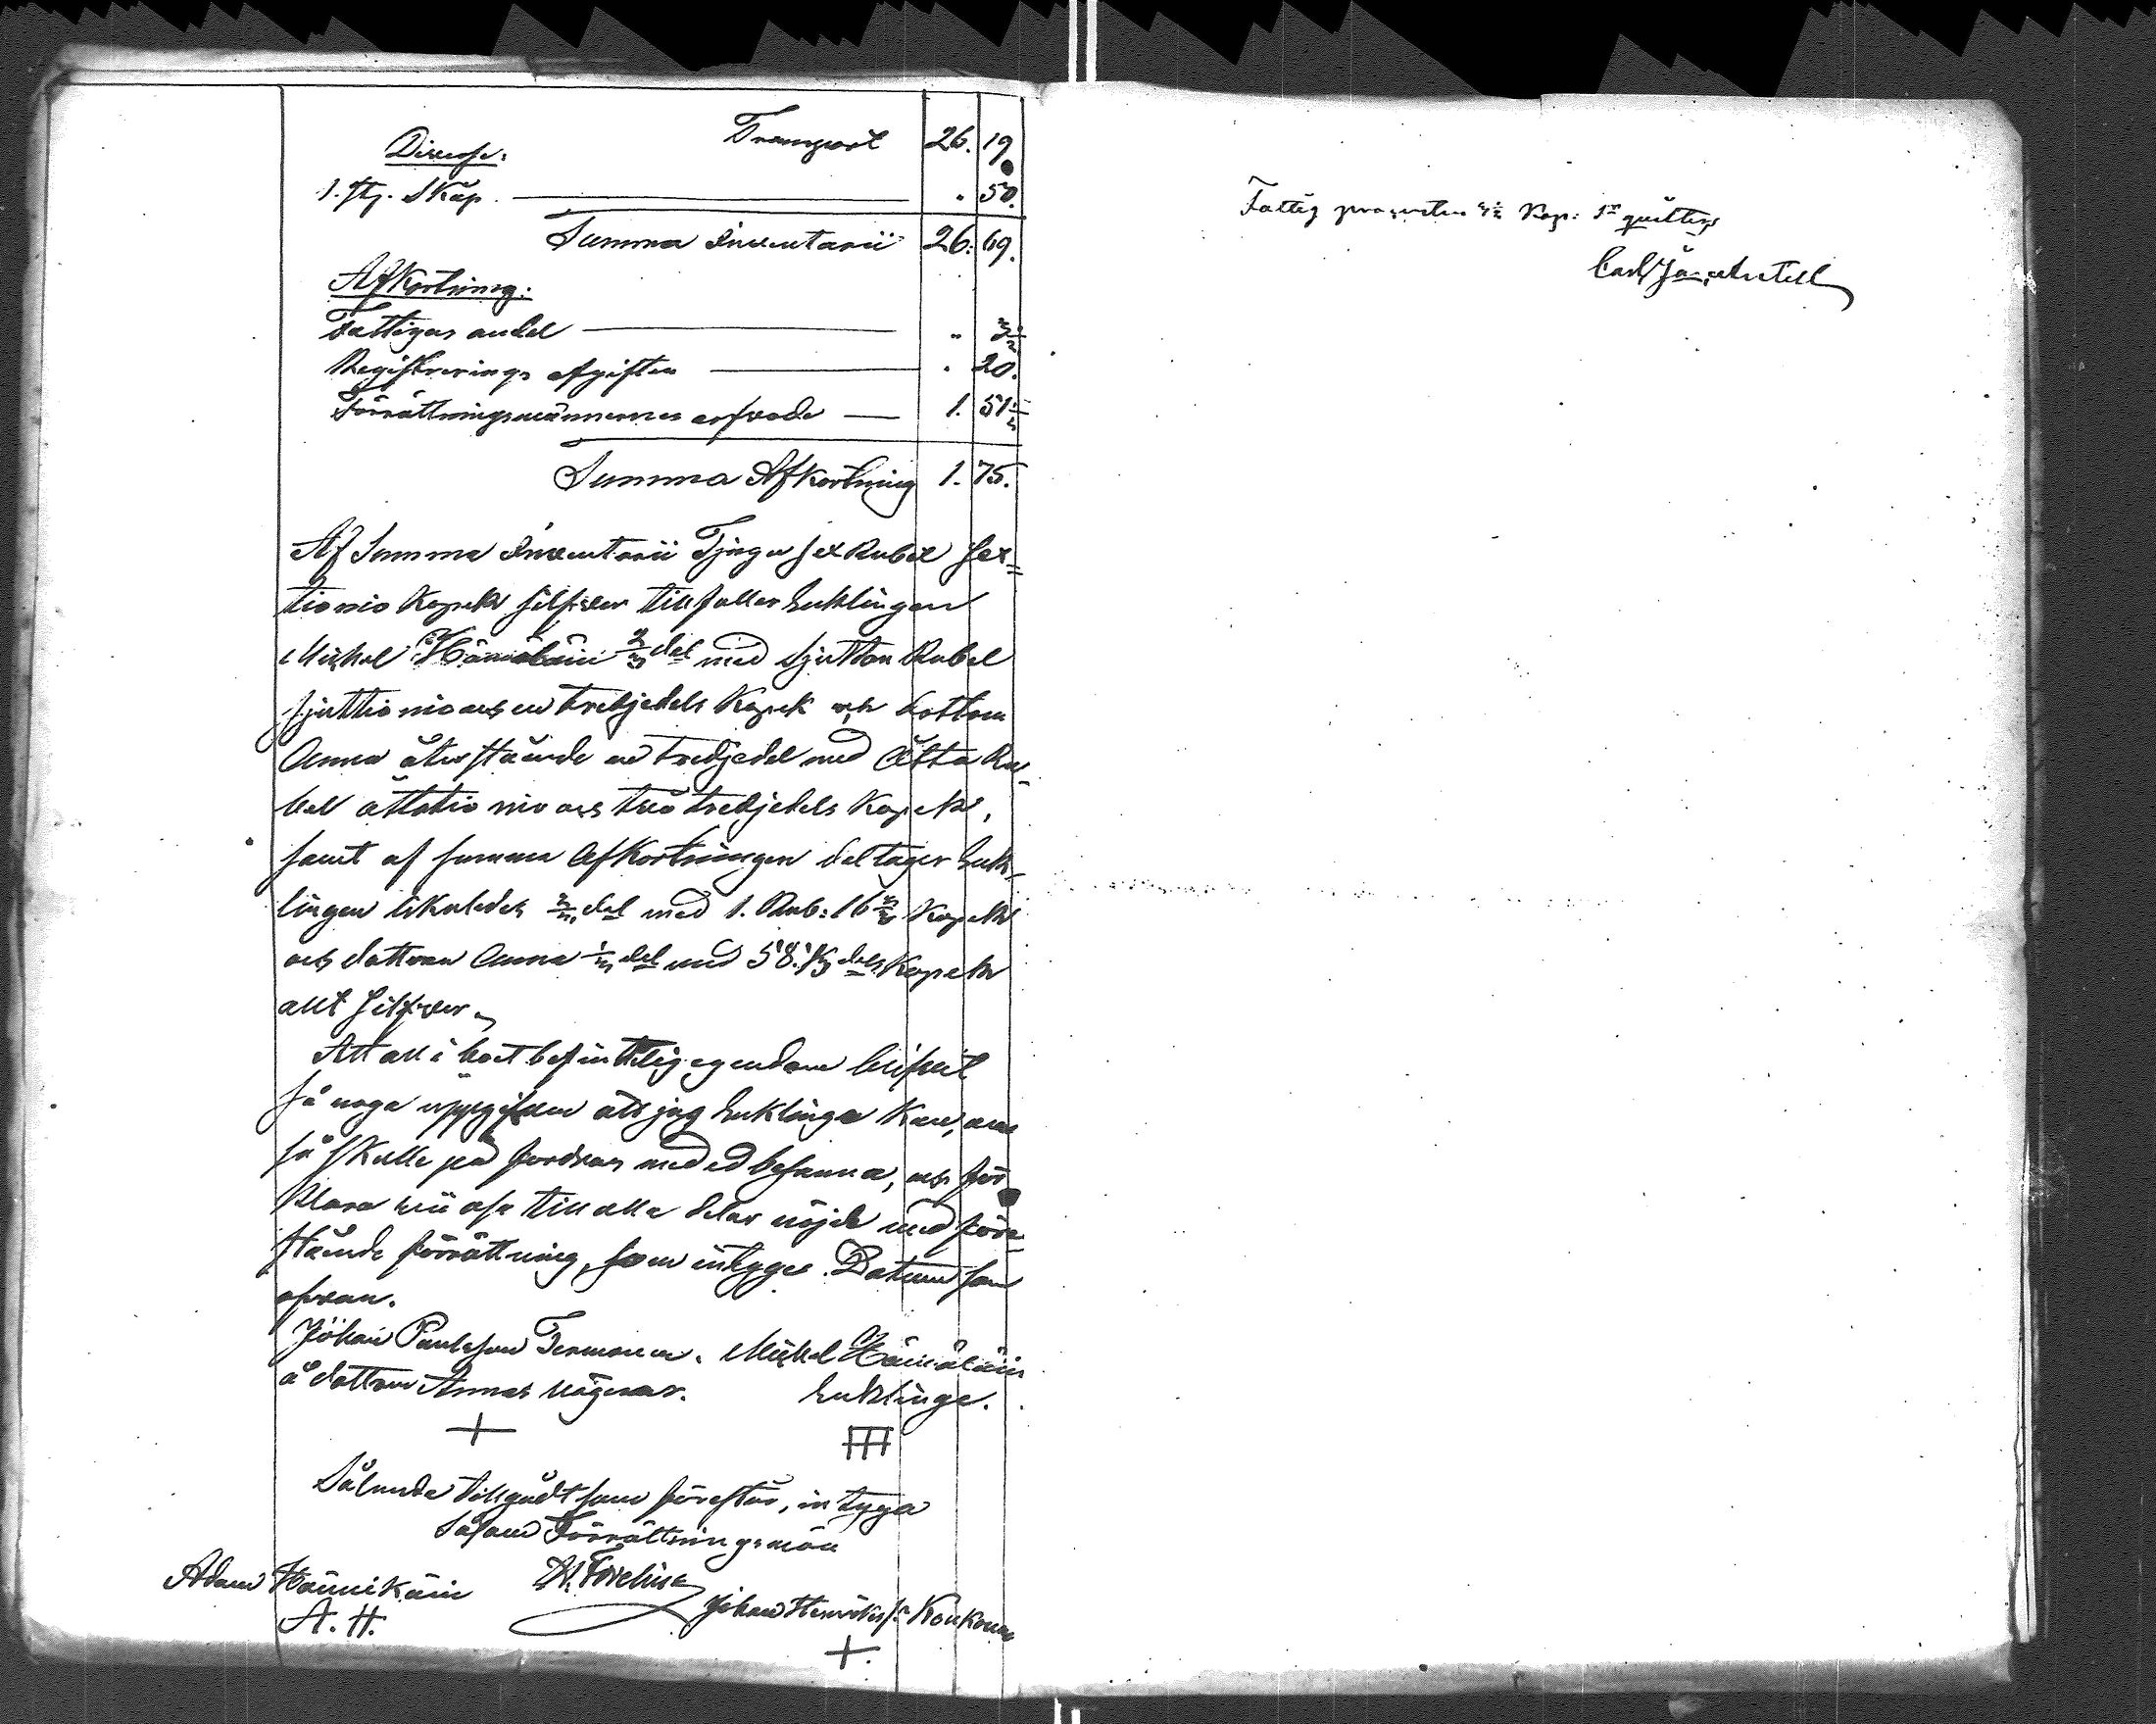 Transport 26. 19
Diverse:
1. st. Skåp. " 50.
Summa Inventarii 26. 69.
Afkortning:
Fattigas andel " 3 1/2
Registrerings afgiften " 20.
Förrättningsmännernes arfvode 1. 51 1/2
Summa Afkortning 1. 75.
Af Summa Inventarii Tjugu sex Rubel sex=
tionio Kopek silfver tillfaller Enklingen
Michel Hämäläin 2/3 del med sjutton Rubel
sjuttionio och en tredjedels Kopek och dottren
Anna återstående en tredjedel med Åtta Ru-
bel åttatio nio och två tredjedels Kopek,
samt af summa Afkortningen deltager Enk-
lingen likaledes 2/3 del med 1. Rub: 16 2/3 Kopek
och dottren Anna 1/3 del med 58. 1/3 dels Kopek
allt silfver.
At all i boet befintelig egendom blifvit
så noga uppgifven att jag Enklinge kan, om
så skulle på fordras med ed besanna, och för
klara wii oss till alla delar nöjde med före-
stående förrättning, som intyges. Datum som
ofvan.
Johan Paulsson Termonen. Michel Hämäläin
å dottren Annas vägnar. Enklinge.
Sålunda tillgådt som förestår, intyga
Såsom Förrättningsmän
Adam Hännikäin
Johan Henrikss: Konkonen
A. H.
Fattig procenten 3 1/2 Kop: Sr quitteras
Carl